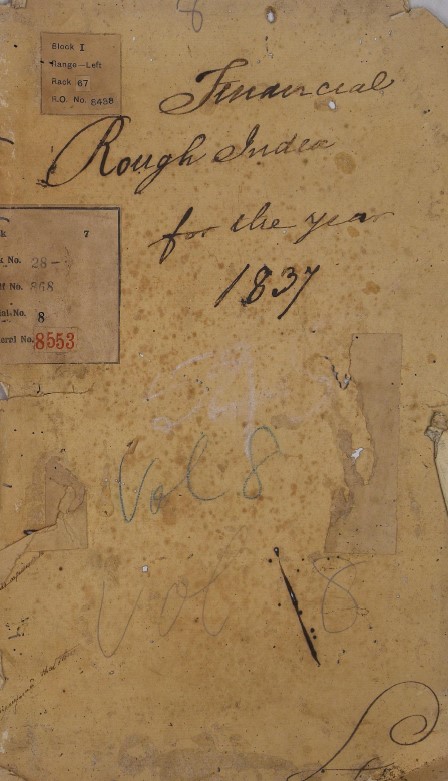 8
Block I
Range—Left
Rack 67
R.O. No. 6438
Financial
Rough Index
for the year
1837
k 7
k No. 28-
lf No. 868
ial No. 8
eral No. 8553
Vol 8
Vol 18